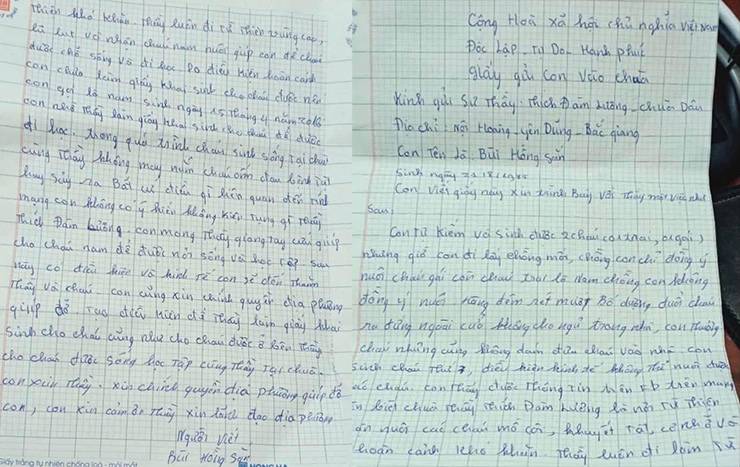 Cộng Hoà xã hội chủ nghĩa việt Nam
Độc Lập - Tự Do - Hạnh phúc
giấy gửi con vào chùa
Kính gửi Sư Thầy: Thích Đàm Lương - chùa Dâu
Địa chỉ: Nội Hoàng - yên Dũng - Bắc giang
Con Tên là: Bùi Hồng Sản
Sinh ngày
Con viết giấy này xin trình bày với Thầy một việc như
sau:
Con Từ Kiếm và sinh được 2 cháu (01 trai, 01 gái)
nhưng giờ con đi lấy chồng mới, chồng con chỉ đồng ý
nuôi cháu gái còn cháu trai là Nam chồng con không
đồng ý nuôi hàng đêm nét mượt Bố dượng đuổi cháu
ra đứng ngoài cửa không cho ngủ trong nhà, con thương
cháu nhưng cũng không dám đưa cháu vào nhà. con
sinh cháu Thứ 3, điều kiện kinh tế không Thể nuôi được
các cháu. con Thấy được Thông tin trên Fb trên mạng
biết chùa Thầy Thích Đàm Lương là nơi Từ Thiện
ăn nuôi các cháu mồ côi, khuyết Tật, cơ nhỡ và
hoàn cảnh khó khăn. Thầy luôn đi làm Từ
Thiện khó khăn Thầy luôn đi Từ Thiện vùng cao,
lũ lụt và nhận cháu nam nuôi giúp con để cháu
được chỗ sống và đi học. Do điều kiện hoàn cảnh
con chưa làm giấy khai sinh cho cháu được nên
con gọi là nam sinh ngày 15 Tháng 4 năm
con nhờ Thầy làm giấy khai sinh cho cháu để được
đi học. Trong quá trình cháu sinh sống Tại chùa
cùng Thầy không may nếu cháu ốm đau bệnh Tật
hay xảy ra Bất cứ điều gì liên quan đến Tính
mạng con không có ý kiến không kiện Tụng gì Thầy
Thích Đàm Lương. con mong Thầy giang Tay cứu giúp
cho cháu nam để được nơi sống và học Tập sau
này có điều kiện về kinh Tế con sẽ đến Thăm
Thầy và cháu. con cũng xin chính quyền địa phương
giúp đỡ Tạo điều kiện để Thầy làm giấy khai
sinh cho cháu cũng như cho cháu được ở bên Thầy
cho cháu được sống học Tập cùng Thầy Tại chùa.
con xin Thầy, xin chính quyền địa phương giúp đỡ
con, con xin cảm ơn Thầy xin lãnh đạo địa phương
Người viết
Bùi Hồng Sản
Giấy trắng tự nhiên chống lóa - mỏi mắt